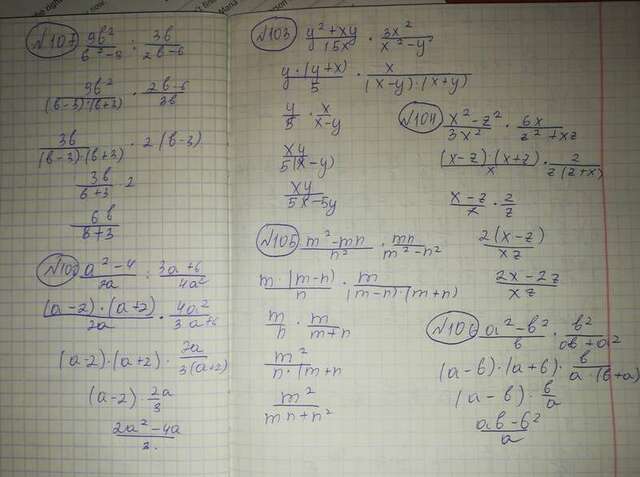 №107 9b²/(b²-9) : 3b/(2b-6)
9b²/((b-3)·(b+3)) · (2b-6)/3b
3b/((b-3)(b+3)) · 2(b-3)
3b/(b+3) · 2
6b/(b+3)
(a²-4)/2a : (3a+6)/4a²
((a-2)·(a+2))/2a · 4a²/(3a+6)
(a-2)·(a+2) · 2a/(3(a+2))
(a-2) · 2a/3
(2a²-4a)/3.
№103 (y²+xy)/15x · 3x²/(x²-y²)
(y·(y+x))/5 · x/((x-y)·(x+y))
y/5 · x/(x-y)
xy/(5(x-y))
xy/(5x-5y)
№104 (x²-z²)/3x² · 6x/(z²+xz)
((x-z)(x+z))/x · 2/(z(z+x))
(x-z)/x · 2/z
2(x-z)/xz
(2x-2z)/xz
№105 (m²-mn)/n² · mn/(m²-n²)
(m·(m-n))/n · m/((m-n)·(m+n))
m/n · m/(m+n)
m²/(n·(m+n
m²/(mn+n²)
№106 (a²-b²)/b · b²/(ab+a²)
(a-b)·(a+b) · b/(a·(b+a)
(a-b) · b/a
(ab-b²)/a